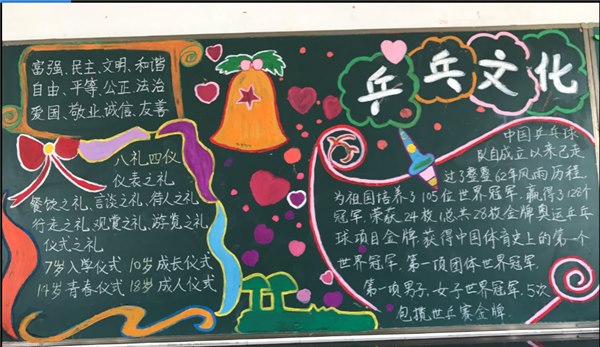 富强、民主、文明、和谐
自由、平等、公正、法治
爱国、敬业、诚信、友善
八礼四仪
仪表之礼
餐饮之礼、言谈之礼、待人之礼
行走之礼、观赏之礼、游览之礼
仪式之礼
7岁入学仪式 10岁成长仪式
14岁青春仪式 18岁成人仪式
乒乓文化
中国乒乓球
队自成立以来已走
过了整整62年风雨历程,
为祖国培养了105位世界冠军,赢得了128个
冠军,荣获24枚(总共28枚金牌奥运乒乓
球项目金牌,获得中国体育史上的第一个
世界冠军,第一项团体世界冠军.
第一项男子,女子世界冠军,5次
包揽世乒赛金牌.